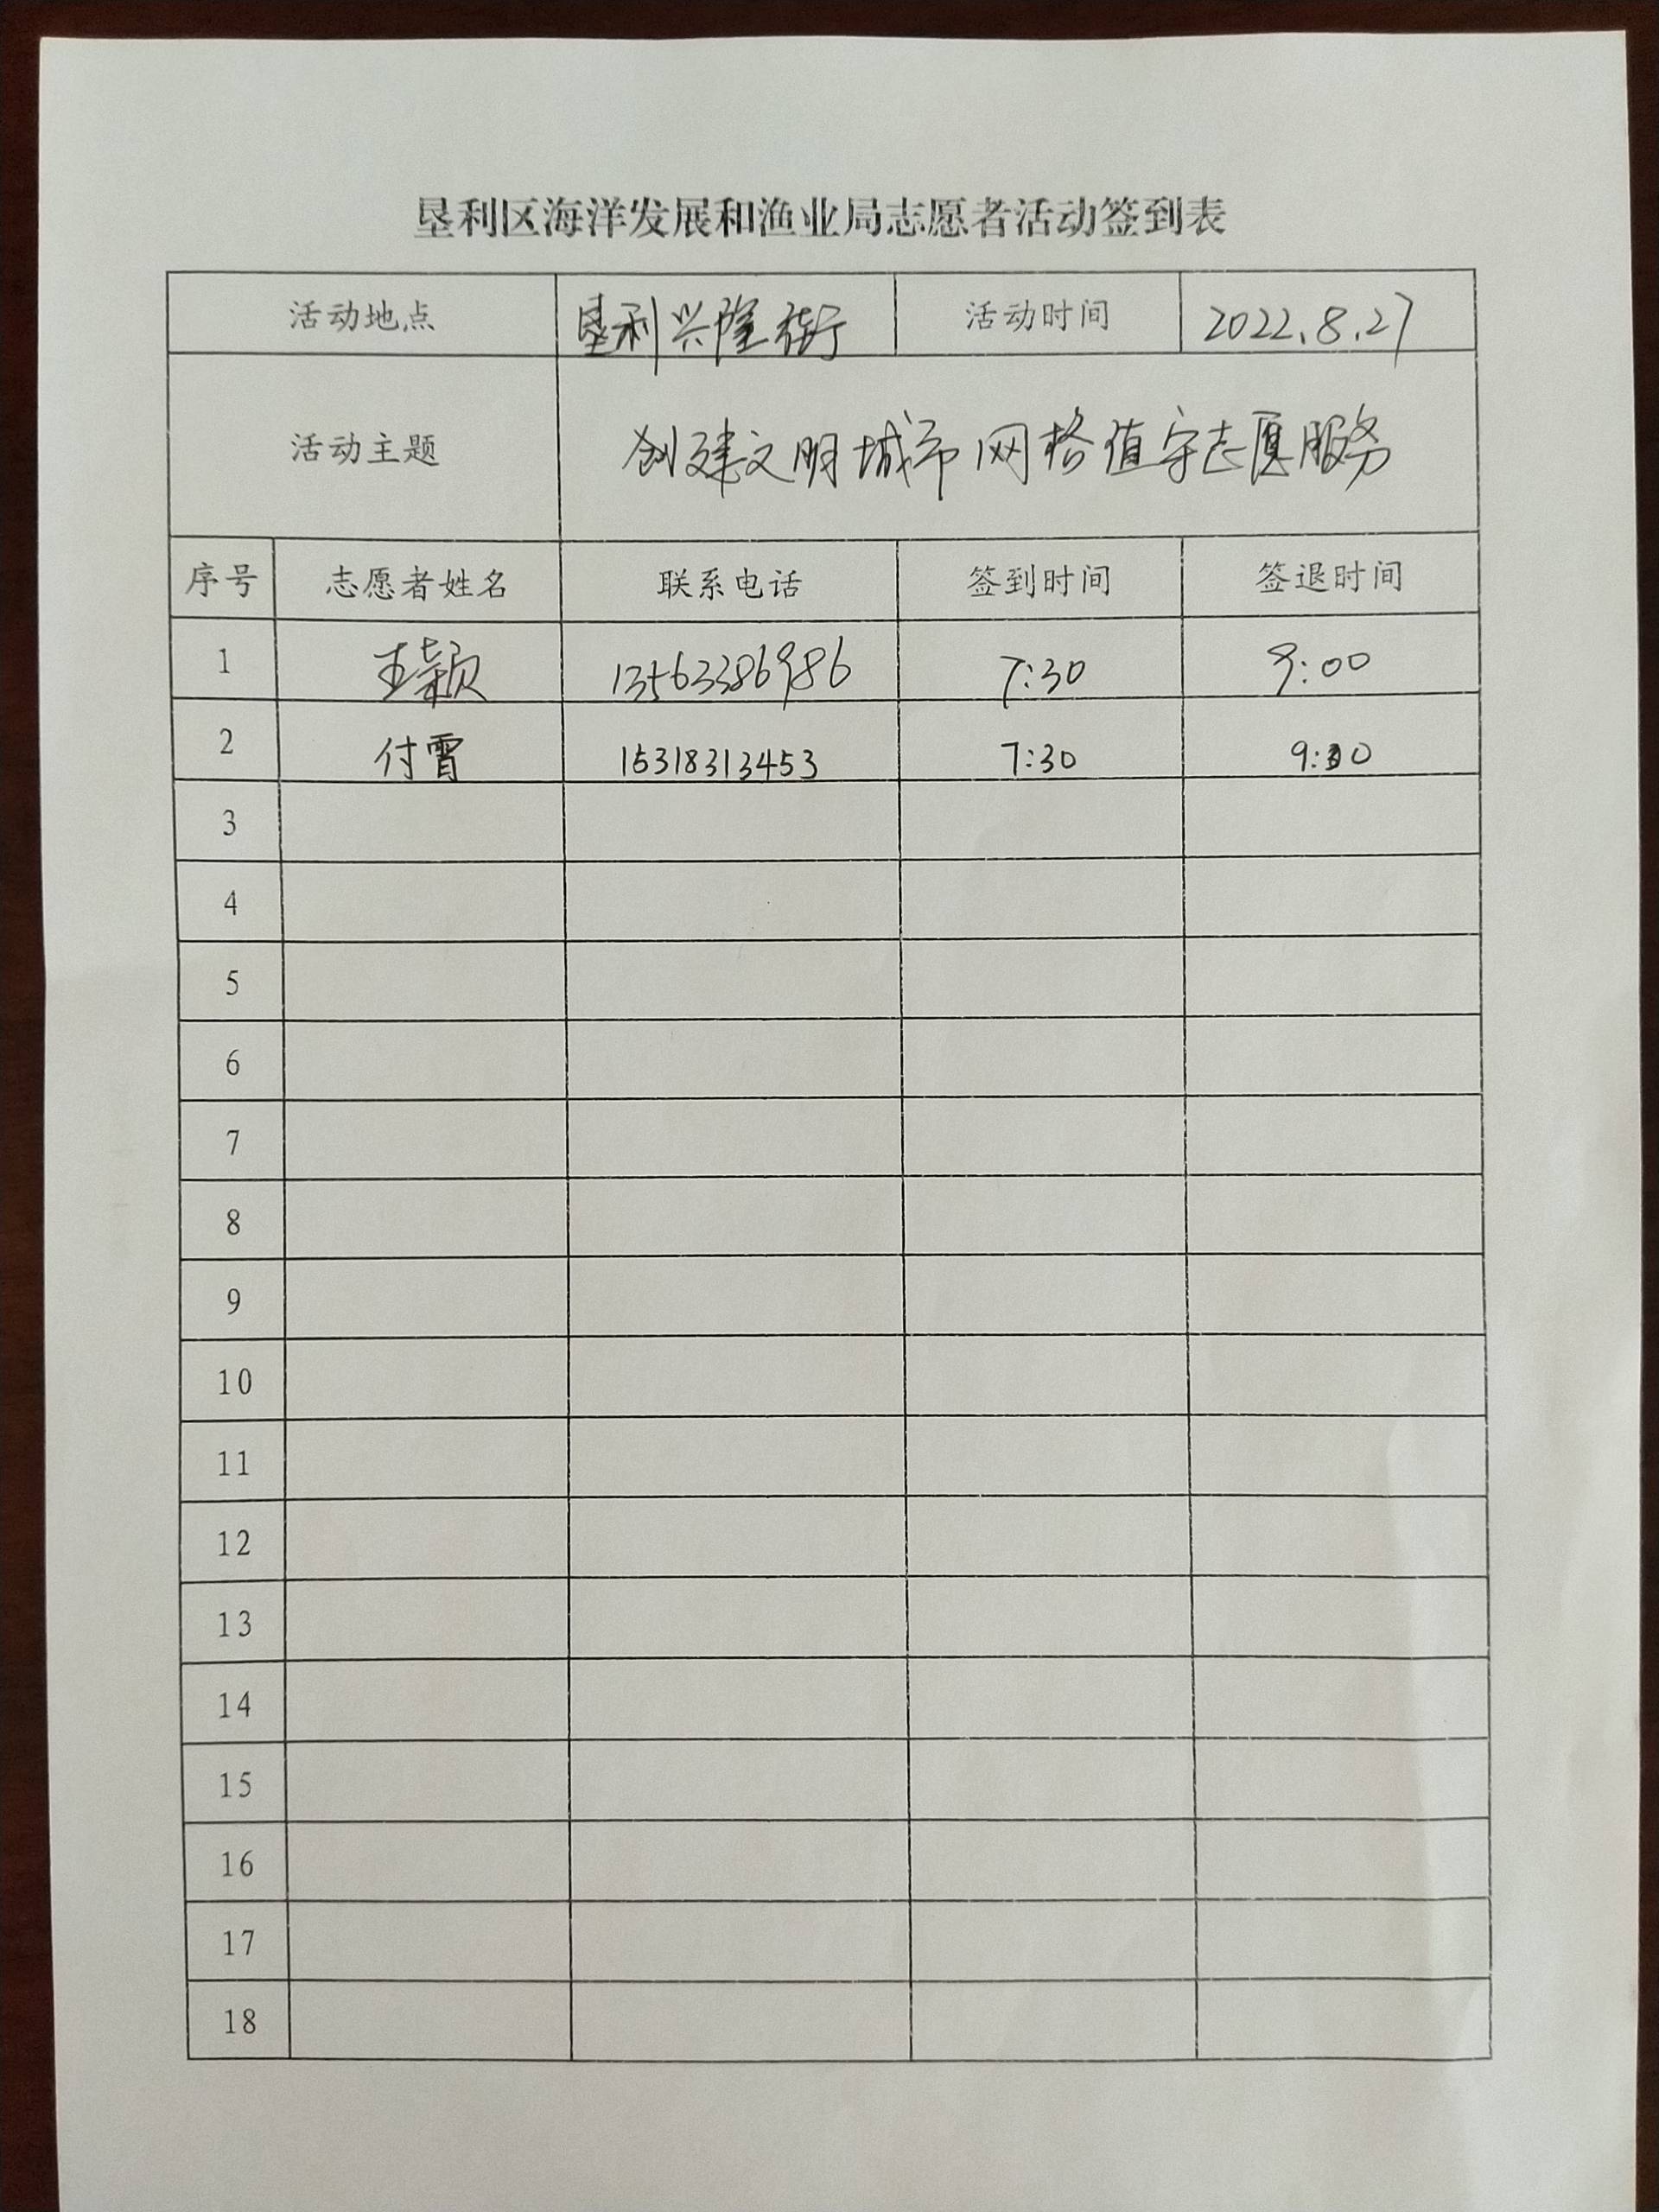 垦利区海洋发展和渔业局志愿者活动签到表
活动地点 垦利兴隆街 活动时间 2022.8.27
活动主题 创建文明城市网格值守志愿服务
序号 志愿者姓名 联系电话 签到时间 签退时间
1 王颖 13563386986 7:30 9:00
2 付霄 15318313453 7:30
3
4
5
6
7
8
9
10
11
12
13
14
15
16
17
18